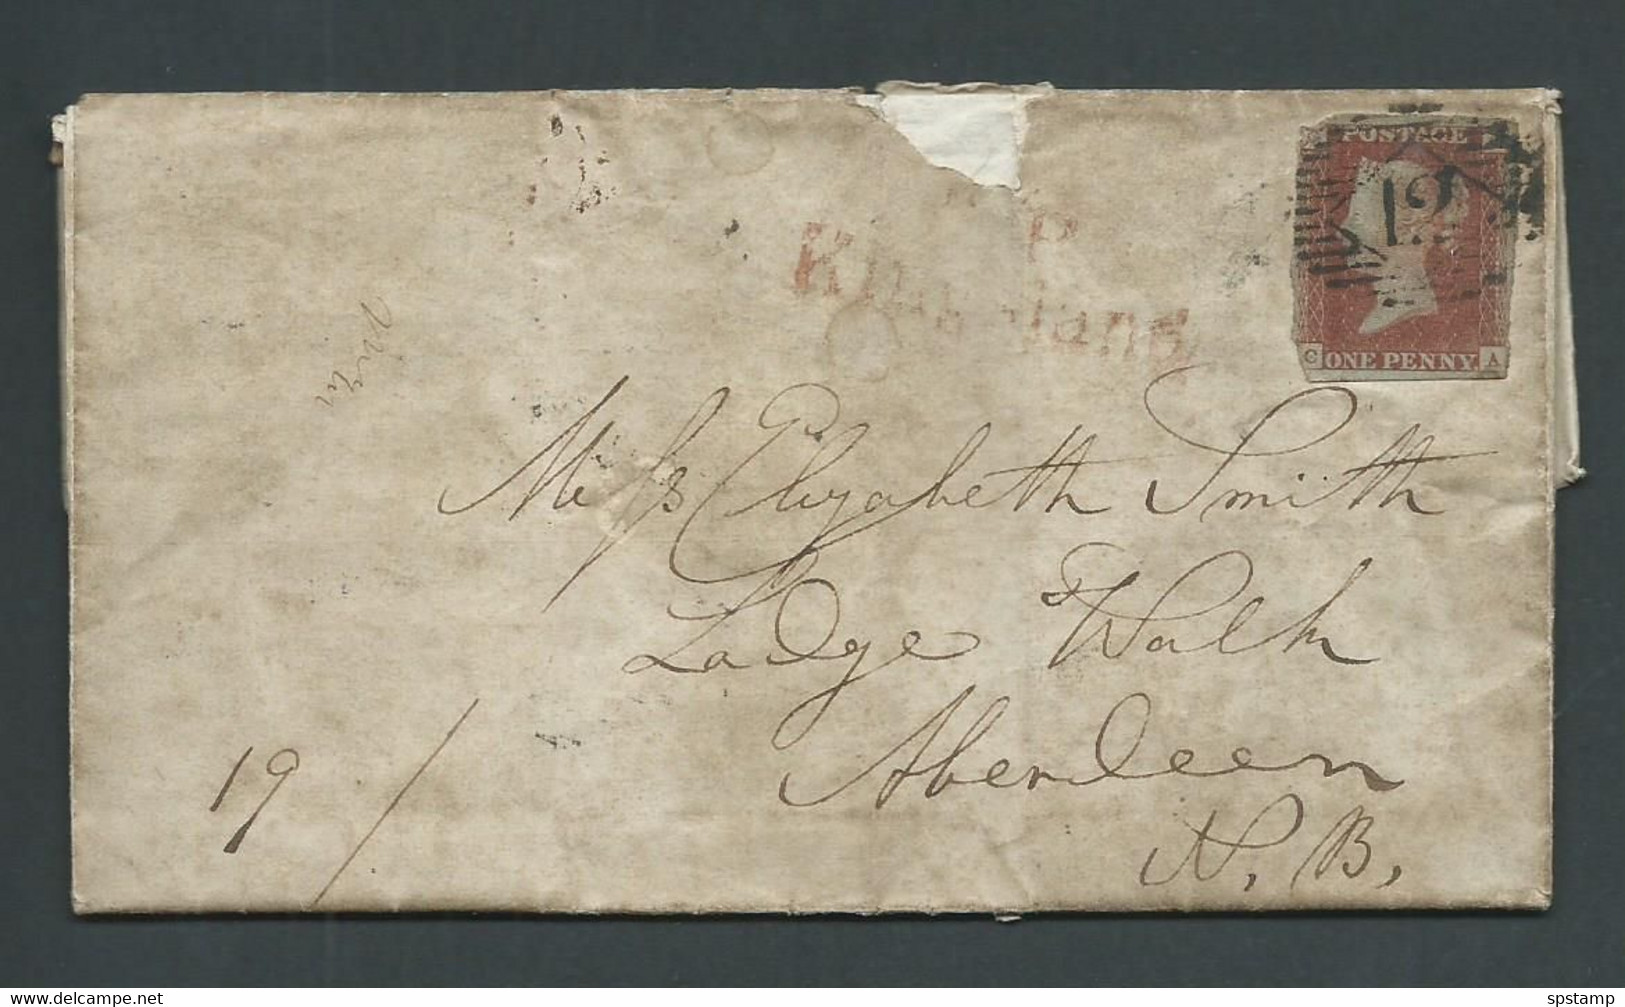 POSTAGE
12
C ONE PENNY A
P
Miss Elizabeth Smith
Lodge Walk
Aberdeen
N. B.
19 /
© spstamp https://www.delcampe.net